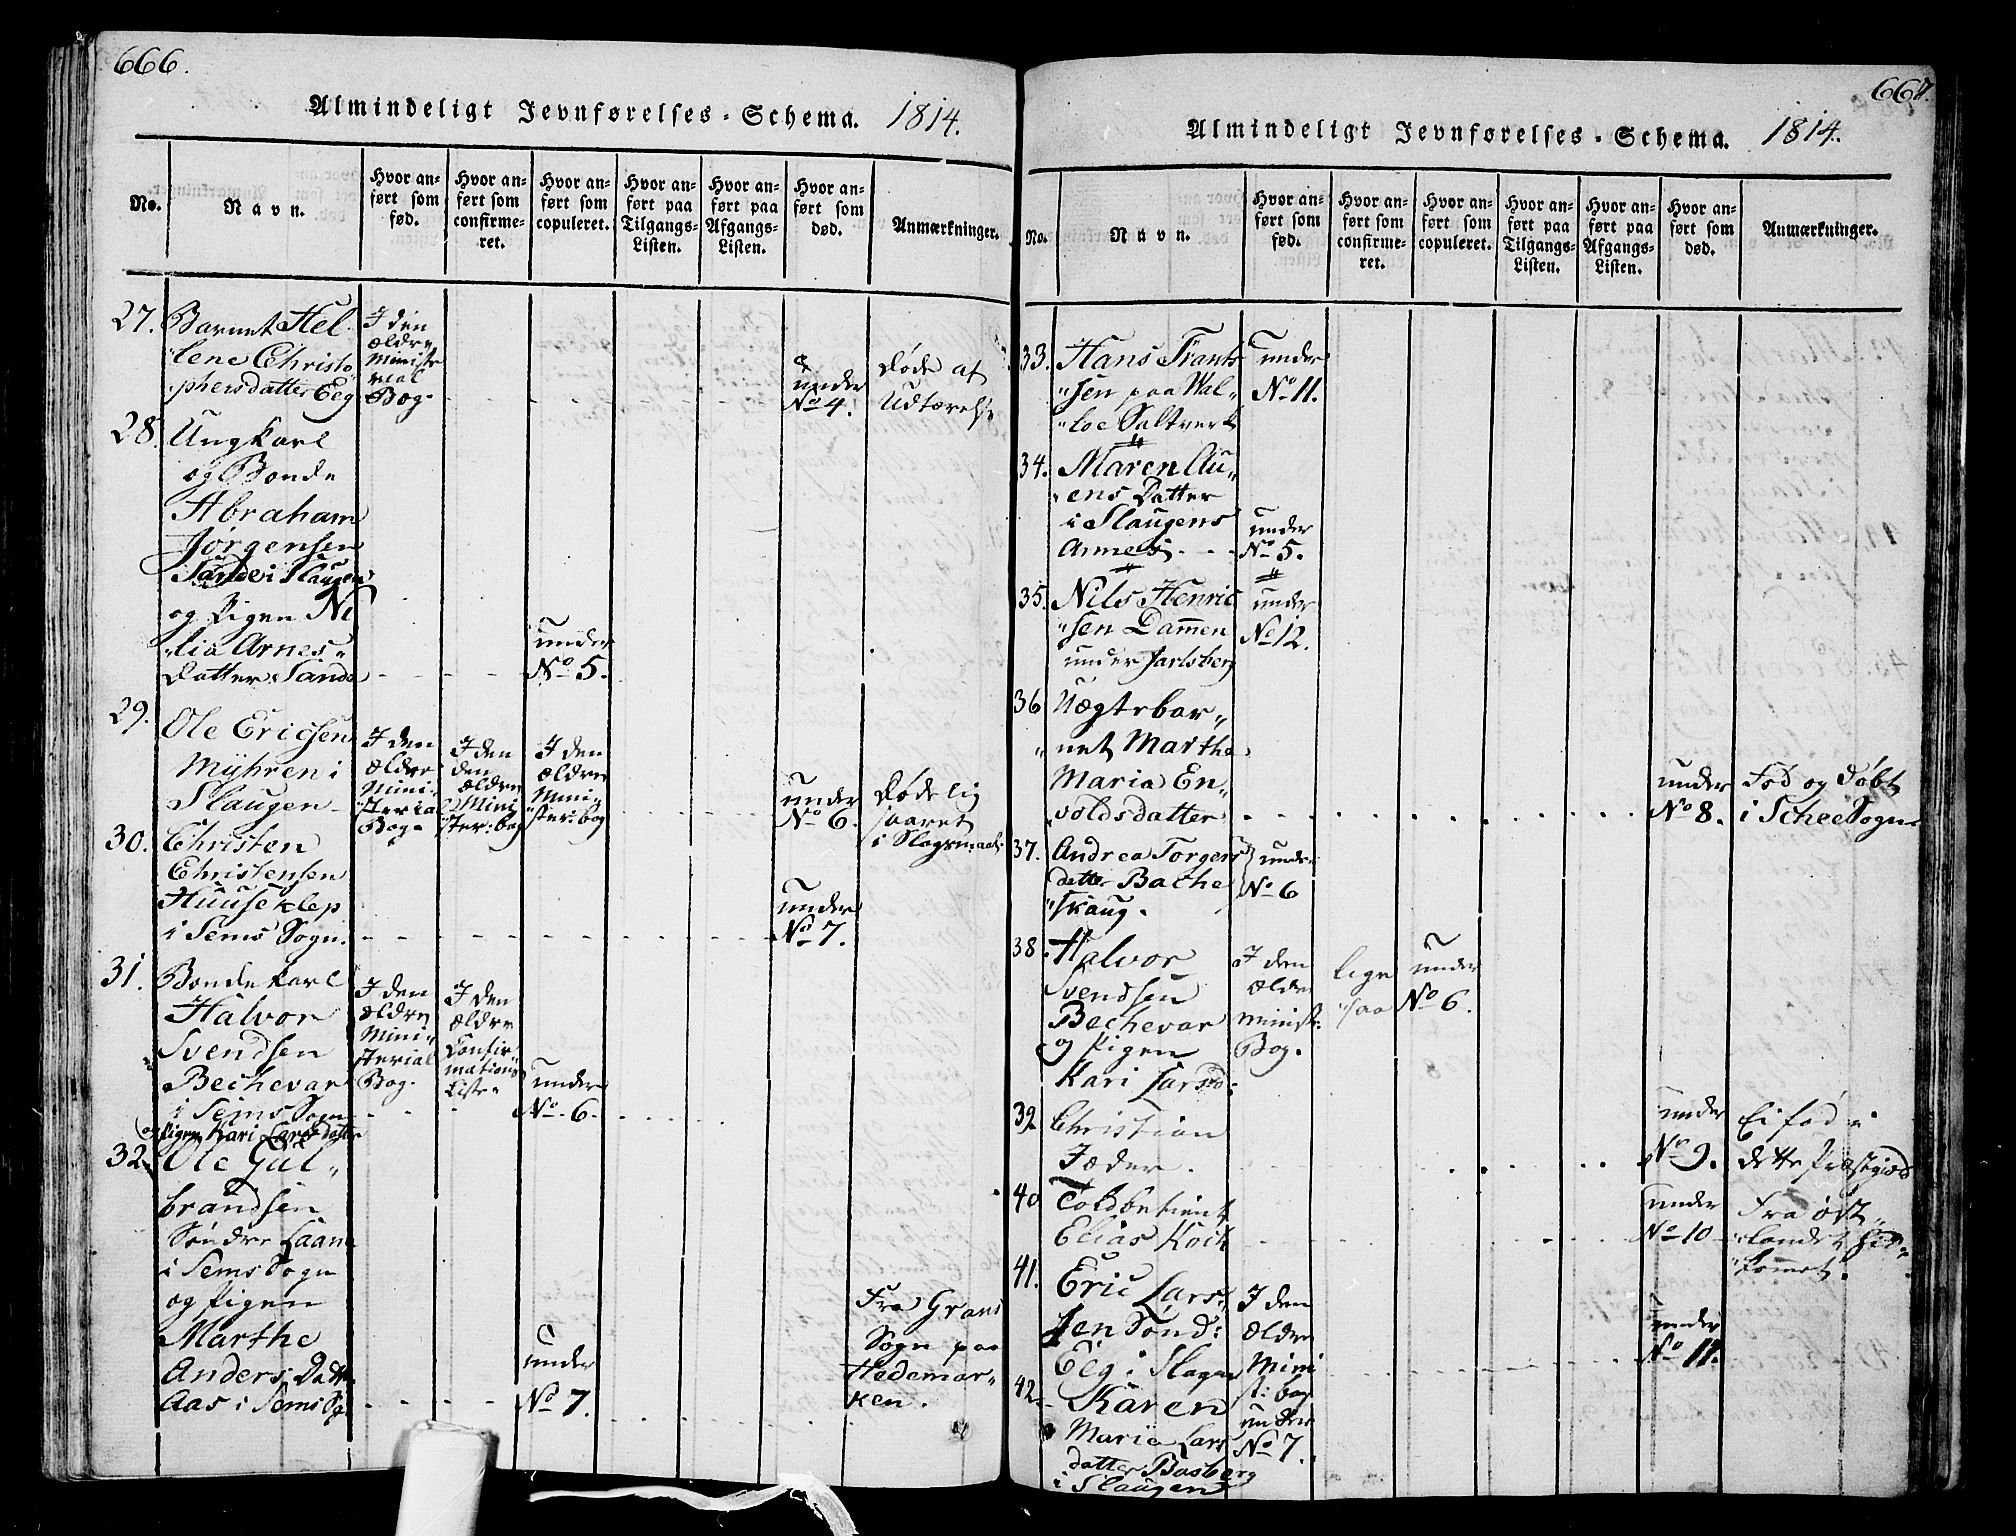 666.
Almindeligt Jevnførelses-Schema. 1814.
No.
Navn.
Hvor anført som fød.
Hvor anført som confirmeret.
Hvor anført som copuleret.
Hvor anført paa Tilgangs-Listen.
Hvor anført paa Afgangs-Listen.
Hvor anført som død.
Anmærkninger.
27. Barnet Hel
lene Christo
phersdatter Eeg
I den
ældre
Ministe
rial
Bog.
under
No 4.
Døde af
Udtærelse
28. Ungkarl
og Bonde
Abraham
Jørgensen
Sande i Slaugen
og Pigen Ni
"lia Arnes"
Datter Sande
under
No 5.
29. Ole Ericsen
Myhren i
Slaugen
I den
ældre
Mini
"steria
Bog.
I den
den
ældre
Mini
ster: bog
I den
ældre
Mini"
ster: bog
under
No 6.
Døde lig
saaret
i Slagsmaal.
30. Christen
Christensen
Huuseklep
i Sems Sogn.
under
No 7.
31. Bonde karl
Halvor
Svendsen
Bechevar
i Sems Sogn
og Pigen Kari Larsdatter
I den
ældre
Mini"
sterial
Bog.
I den
ældre
Confir"
mations
Liste
under
No 6.
32. Ole Gul"
brandsen
Søndre Laane
i Sems Sogn
og Pigen
Marthe
Anders Datter
Aas i Sems Sg
under
No 7.
Fra Grans
Sogn paa
Hedemar"
ken.
667.
Almindeligt Jevnførelses-Schema. 1814.
No.
Navn.
Hvor anført som fød.
Hvor anført som confirmeret.
Hvor anført som copuleret.
Hvor anført paa Tilgangs-Listen.
Hvor anført paa Afgangs-Listen.
Hvor anført som død.
Anmærkninger.
33. Hans Frants
"sen paa Wal"
"loe Saltverk
under
No 11.
34. Maren Au"
"ens Datter
i Slaugens
Annex
under
No 5.
35. Nils Henric
"sen Dammen
under Jarlsberg
under
No 12.
36 Uægtebar"
"net Martha
Maria En"
"voldsdatter
under
No 8.
Fød og døbt
i Schee Sogn
37. Andrea Torgers
datter Bache
"skaug.
under
No 6
38. Halvor
Svendsen
Bechevar
og Pigen
Kari Larsd:
I den
ældre
minist:
Bog.
lige
"saa
under
No 6.
39 Christian
Jæder.
under
No 9.
Ei fød i
dette Præstegield
40 Toldbetient
Elias Koch
under
No 10
Fra Øst"
"landet hid"
"kommet.
41. Eric Lars"
sen Sønd:
Eeg i Slagen
I den
ældre
Mini
st: bog
under
No 11.
42. Karen
Marie Lars
datter Basberg
i Slaugen
under
No 7.